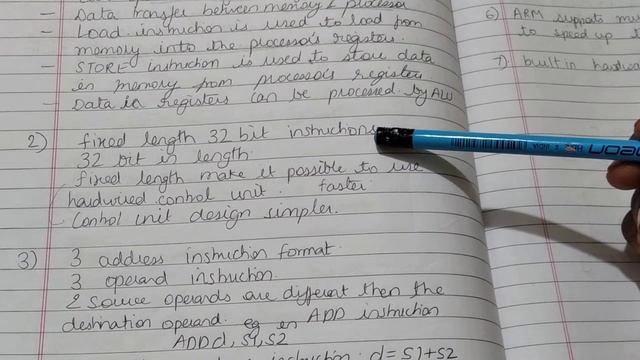 - Data transfer between memory & processor
- Load instruction is used to load from
memory into the processor's registers.
- STORE instruction is used to store data
in memory from processor's register
- Data in registers can be processed by ALU
2) fixed length 32 bit instructions
32 bit in length.
fixed length make it possible to use
hardwired control unit. faster.
Control unit design simpler.
3) 3 address instruction format.
3 operand instruction.
2 source operands are different then the
destination operand. eg en ADD instruction
ADD d, S1, S2
instruction: d = S1+S2
6) ARM supports
to speed up
7) built in